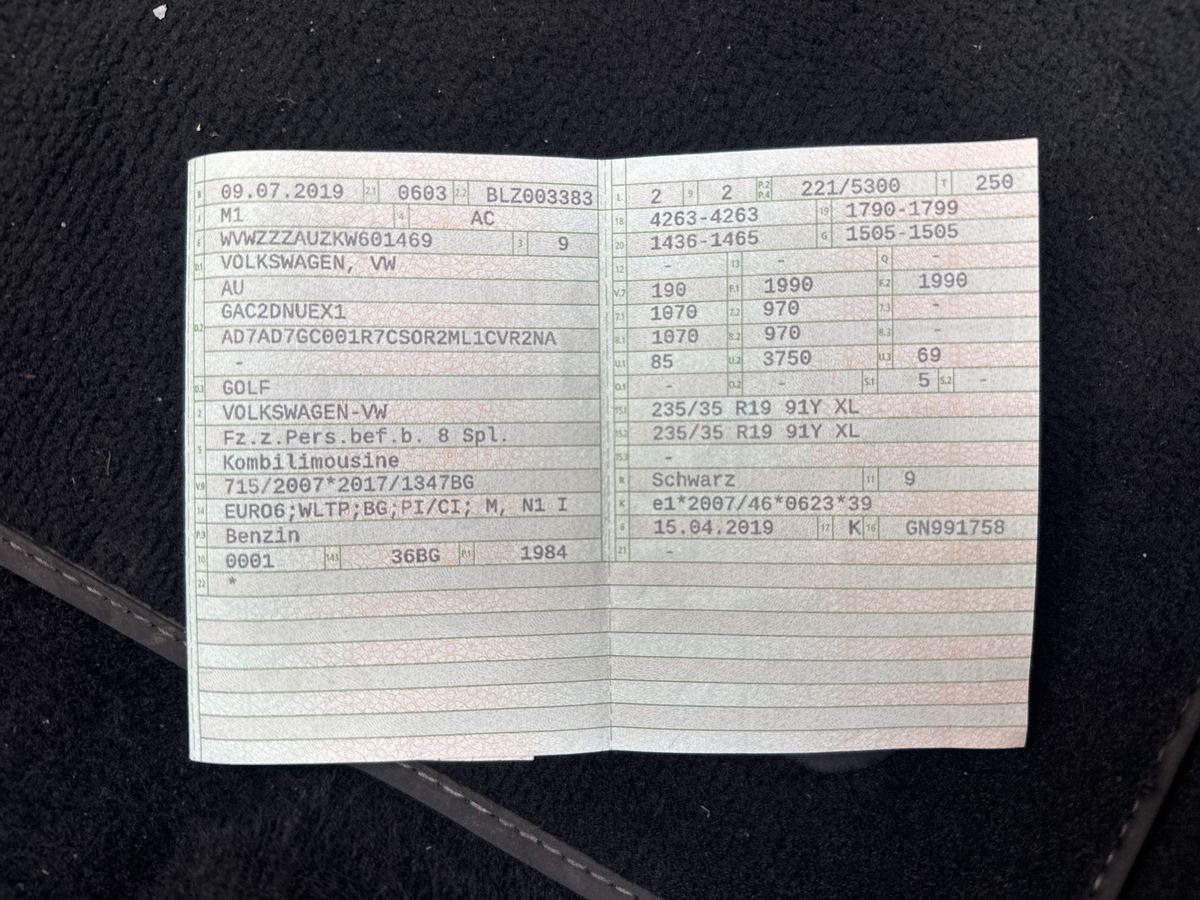 B 09.07.2019 2.1 0603 2.2 BLZ003383
J M1 4 AC
E WVWZZZAUZKW601469 3 9
D.1 VOLKSWAGEN, VW
AU
GAC2DNUEX1
D.2 AD7AD7GC001R7CSOR2ML1CVR2NA
-
D.3 GOLF
2 VOLKSWAGEN-VW
Fz.z.Pers.bef.b. 8 Spl.
5 Kombilimousine
V.9 715/2007*2017/1347BG
14 EURO6;WLTP;BG;PI/CI; M, N1 I
P.3 Benzin
10 0001 14.1 36BG P.1 1984
22 *
L 2 9 2 P.2 P.4 221/5300 T 250
18 4263-4263 19 1790-1799
20 1436-1465 G 1505-1505
12 - 13 - Q -
V.7 190 F.1 1990 F.2 1990
7.1 1070 7.2 970 7.3 -
8.1 1070 8.2 970 8.3 -
U.1 85 U.2 3750 U.3 69
O.1 - O.2 - S.1 5 S.2 -
15.1 235/35 R19 91Y XL
15.2 235/35 R19 91Y XL
15.3 -
R Schwarz 11 9
K e1*2007/46*0623*39
6 15.04.2019 17 K 16 GN991758
21 -